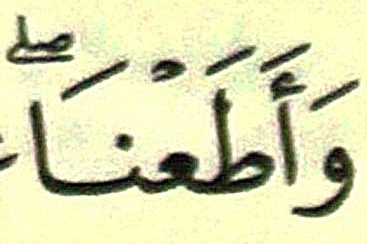 وَأَطَعْنَا ۖ